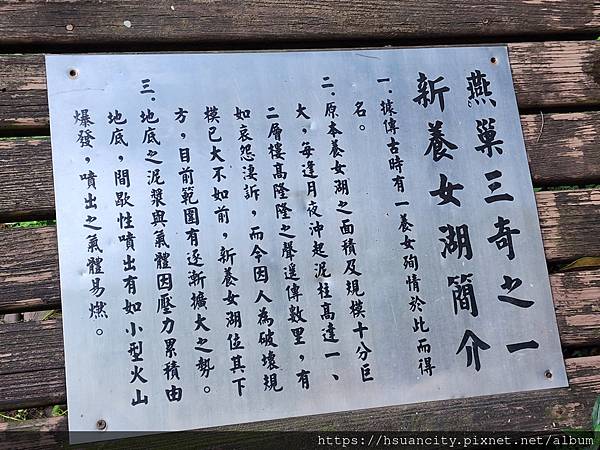 燕巢三奇之一
新養女湖簡介
一．據傳古時有一養女殉情於此而得
名。
二．原本養女湖之面積及規模十分巨
大，每逢月夜沖起泥柱高達一、
二層樓高隆隆之聲遠傳數里，有
如哀怨淒訴，而今因人為破壞規
模已大不如前，新養女湖位其下
方，目前範圍有逐漸擴大之勢。
三．地底之泥漿與氣體因壓力累積由
地底，間歇性噴出有如小型火山
爆發，噴出之氣體易燃。
https://hsuancity.pixnet.net/album